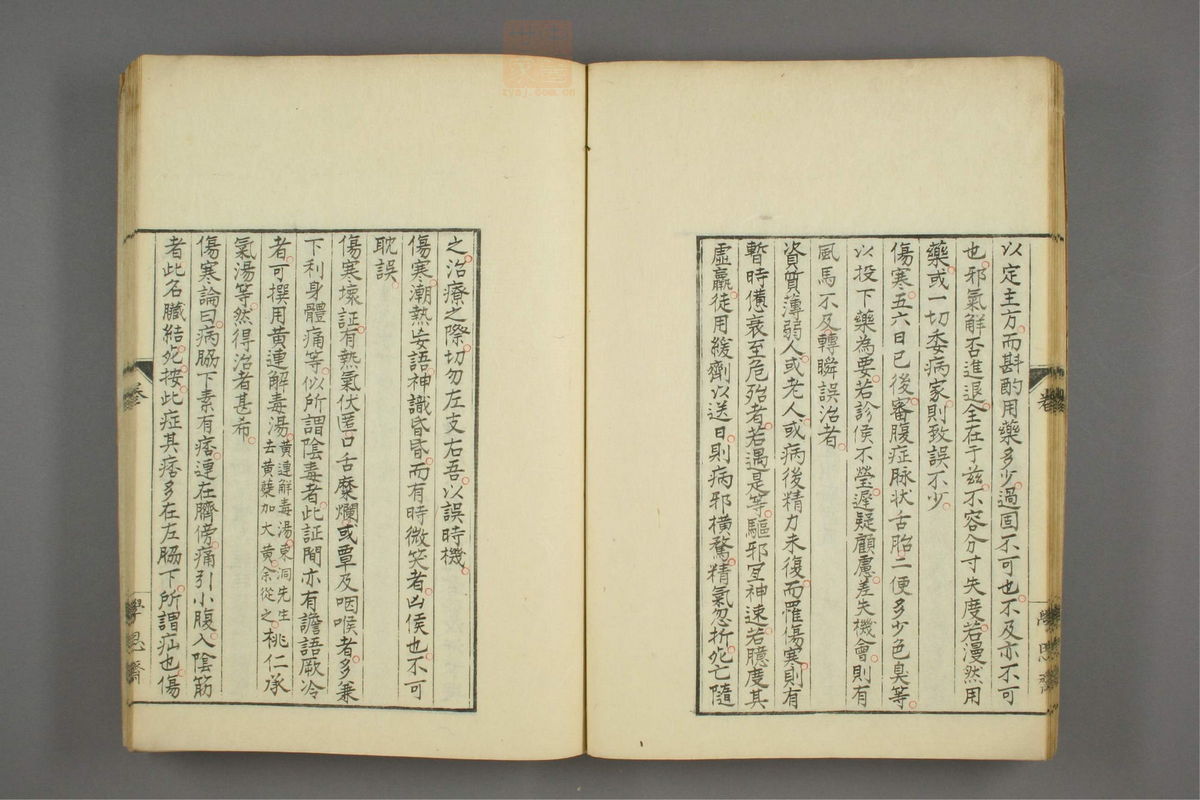 以定主方而斟酌用藥多少過固不可也不及亦不可
也邪氣解否進退全在于兹不容分寸失度若漫然用
藥或一切委病家則致誤不少
傷寒五六日已後審腹症脉状舌胎二便多少色臭等
以投下藥為要若診侯不瑩遲疑顧慮差失機會則有
風馬不及轉瞬誤治者
資質薄弱人或老人或病後精力未復而罹傷寒則有
暫時憊衰至危殆者若遇是等驅邪宜神速若臆度其
虛羸徒用緩劑以送日則病邪横騖精氣忽折死亡隨
之治療之際切勿左支右吾以誤時機
傷寒潮熱妄語神識昏昏而有時微笑者凶侯也不可
耽誤
傷寒壞証有熱氣伏匿口舌糜爛或蕈及咽喉者多兼
下利身體痛等似所謂陰毒者此証間亦有譫語厥冷
者可撰用黄連解毒湯黄連解毒湯東洞先生去黄蘗加大黄余從之桃仁承
氣湯等然得治者甚希
傷寒論曰病脇下素有痞連在臍傍痛引小腹入陰筋
者此名臟結死按此症其痞多在左脇下所謂疝也傷
卷
學思齋